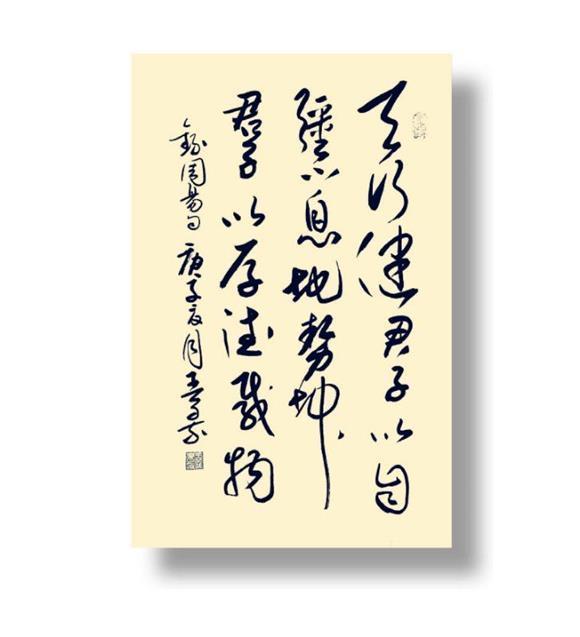 天行健君子以自
彊不息地勢坤
君子以厚德載物
錄周易句 庚子夏月